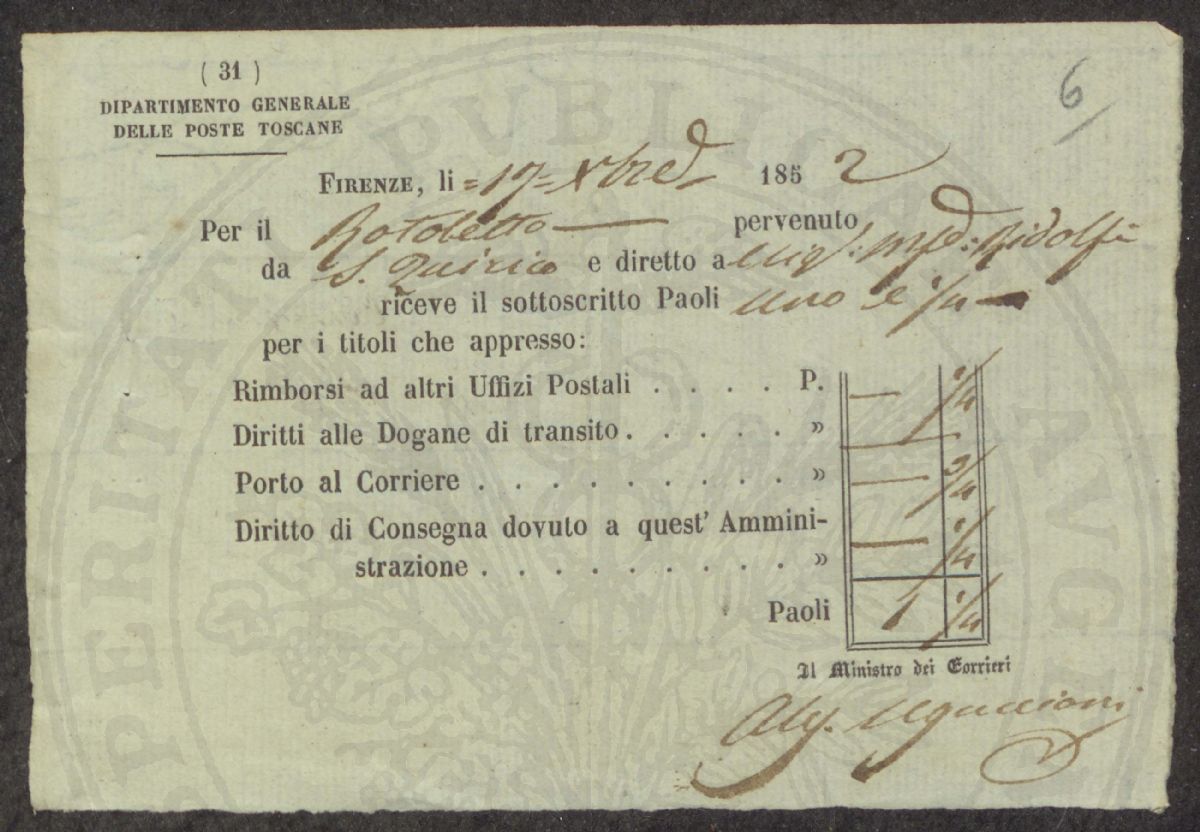 ( 31 )
6
DIPARTIMENTO GENERALE
DELLE POSTE TOSCANE
FIRENZE, li =17= Xbre 1852
Per il Rotoletto pervenuto
da S. Quirico e diretto a Ridolfi
riceve il sottoscritto Paoli uno e 1/4
per i titoli che appresso:
Rimborsi ad altri Uffizi Postali . . . . P. — 1/4
Diritti alle Dogane di transito . . . . . » —
Porto al Corriere . . . . . . . . . » — 3/4
Diritto di Consegna dovuto a quest' Ammini-
strazione . . . . . . . . . . » — 1/4
Paoli 1 1/4
Il Ministro dei Corrieri
Aless. Uguccioni
PERITATI PVBLICAE AVGE